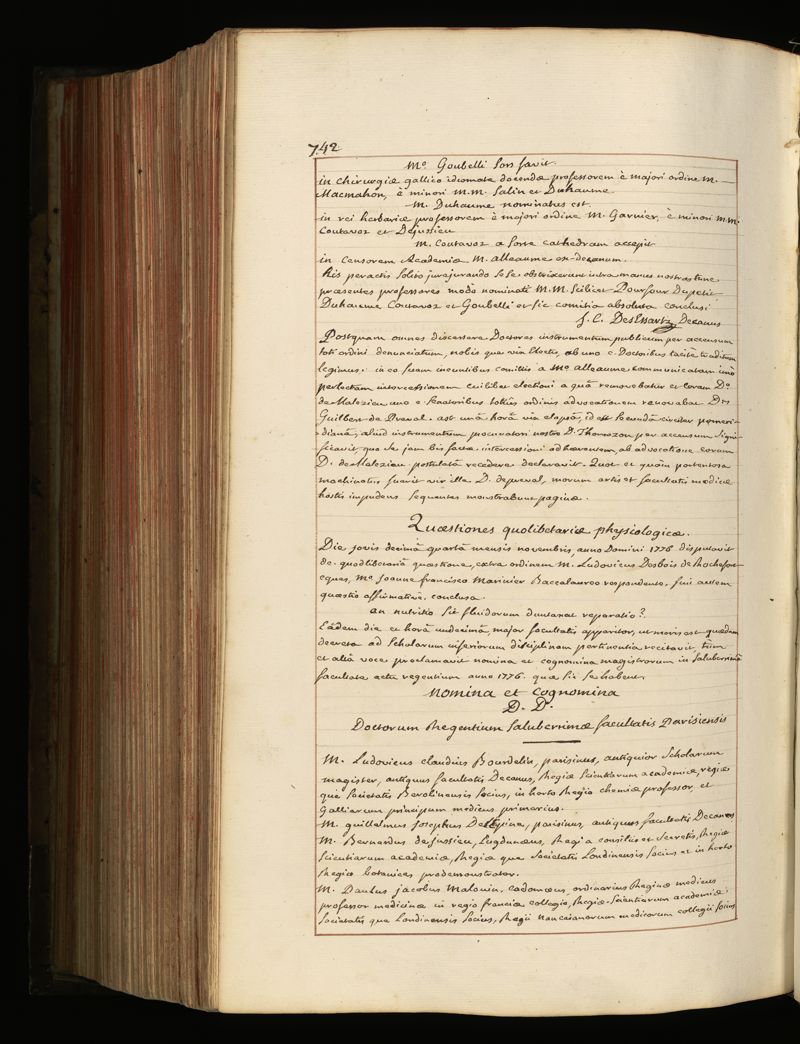 742
Mo Goubelli sors favit.
in chirurgiæ gallico idiomate docendæ professorem è majori ordine M.
Macmahon, è minori M.M. Salin et Duhaume
M. Duhaume nominatus est.
in rei herbariæ professorem è majori ordine M. Garnier, è minori M.M.
Coutavoz et Dejussieu
M. Coutavoz a sorte cathedram accepit
in censorem Academiæ M. alleaume ex-decanum.
his peractis solito jurejurando sese obstrixerunt intra manus nostras tunc
præsentes professores modò nominati M.M. scilicet Pourfour Dupetit
Duhaume Coutavoz et Goubelli et sic comitia absoluta conclusi
J. C. DesEssartz Decanus
Postquam omnes discessere Doctores instrumentum publicum per accensum
toti ordini denunciatum, nobis que vix electis, ab uno e Doctoribus tacitè traditum
legimus. in eo suam ineuntibus comitiis a Mo alleaume communicatam imò
perlectam intercessionem cuilibet electioni a quâ removebatur et coram Do
de Malezieu uno e senatoribus totius ordinis advocationem renovabat Dus
Guilbert de Preval. ast unâ horâ vix elapsâ, id est secundâ circiter pomeri-
dianâ, aliud instrumentum procuratori nostro D. Thomazon per accensum signi-
ficavit quo se jam bis factæ intercessioni adhærentem, ab advocatione coram
D. de Malezieu postulatâ recedere declaravit. Quot et quàm portentosa
machinatus fuerit vir ille D. depreval, morum artis et facultatis medicæ
hostis impudens sequentes monstrabunt paginæ.
Quæstiones quolibetariæ physiologicæ.
Die jovis decimâ quartâ mensis novembris, anno Domini 1776 disputavit
de quodlibetariâ quæstione, extra ordinem M. Ludovicus Desbois de Rochefort
eques, Mo Joanne francisco Marinier Baccalaureo respondente. fuit autem
quæstio affirmativè conclusa.
an nutritio sit fluidorum duntaxat reparatio?
Eâdem die et horâ undecimâ, major facultatis apparitor, ut moris est quædam
decreta ad scholarum inferiorum disciplinam pertinentia recitavit, tùm
et altâ voce proclamavit nomina et cognomina magistrorum in saluberrimâ
facultate actu regentium anno 1776. quæ sic se habent.
Nomina et Cognomina
D. D.
Doctorum Regentium saluberrimæ facultatis Parisiensis
M. Ludovicus claudius Bourdelin, parisinus, antiquior scholarum
magister, antiquus facultatis Decanus, Regiæ scientiarum academiæ, regiæ
que societatis Berolinensis socius, in horto Regio chemiæ professor, et
Galliarum principum medicus primarius.
M. guillelmus josephus De lEpine, parisinus, antiquus facultatis Decanus
M. Bernardus de jussieu, Lugdunæus, Regi a consiliis et secretis, Regiæ
scientiarum academiæ, Regiæ que societatis Londinensis socius et in horto
Regio botanices prodemonstrator.
M. Paulus jacobus Malouin, cadomæus, ordinarius Reginæ medicus
professor medicinæ in regio franciæ collegio, Regiæ scientiarum academiæ
societatis que Londinensis socius, Regii nanceianorum medicorum collegii socius